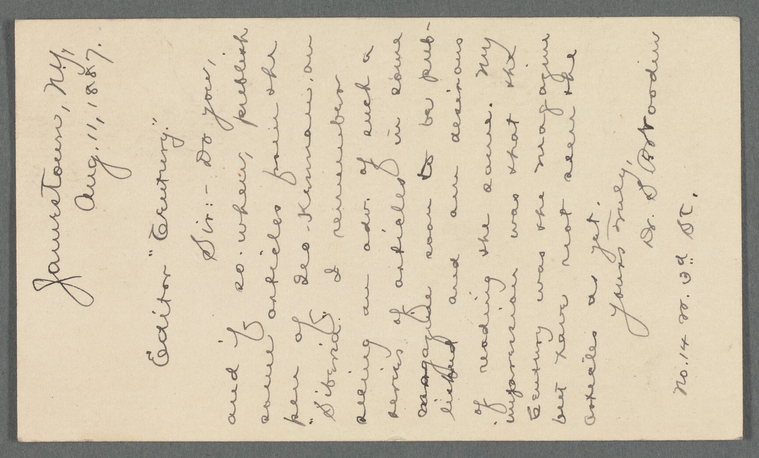 Jamestown, N.Y.,
Aug. 11, 1887.
Editor "Century."
Sir:- Do you,
and if so when, publish
some articles from the
pen of Geo. Kennan, on
"Siberia." I remember
seeing an adv. of such a
series of articles in some
magazine soon to be pub-
lished and am desirous
of reading the same. My
impression was that the
Century was the magazine
but have not seen the
articles as yet.
Yours truly,
Dr. S Woodin
No. 14 W. 3d St.